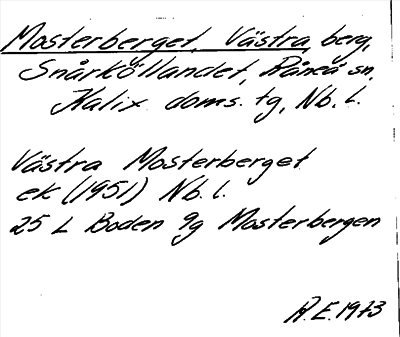 Mosterberget, Västra, berg,
Snårköllandet, Råneå sn,
Kalix doms. tg, Nb. l.
Västra Mosterberget
ek (1951) Nb. l.
25 L Boden 9g Mosterbergen
R.E. 1973